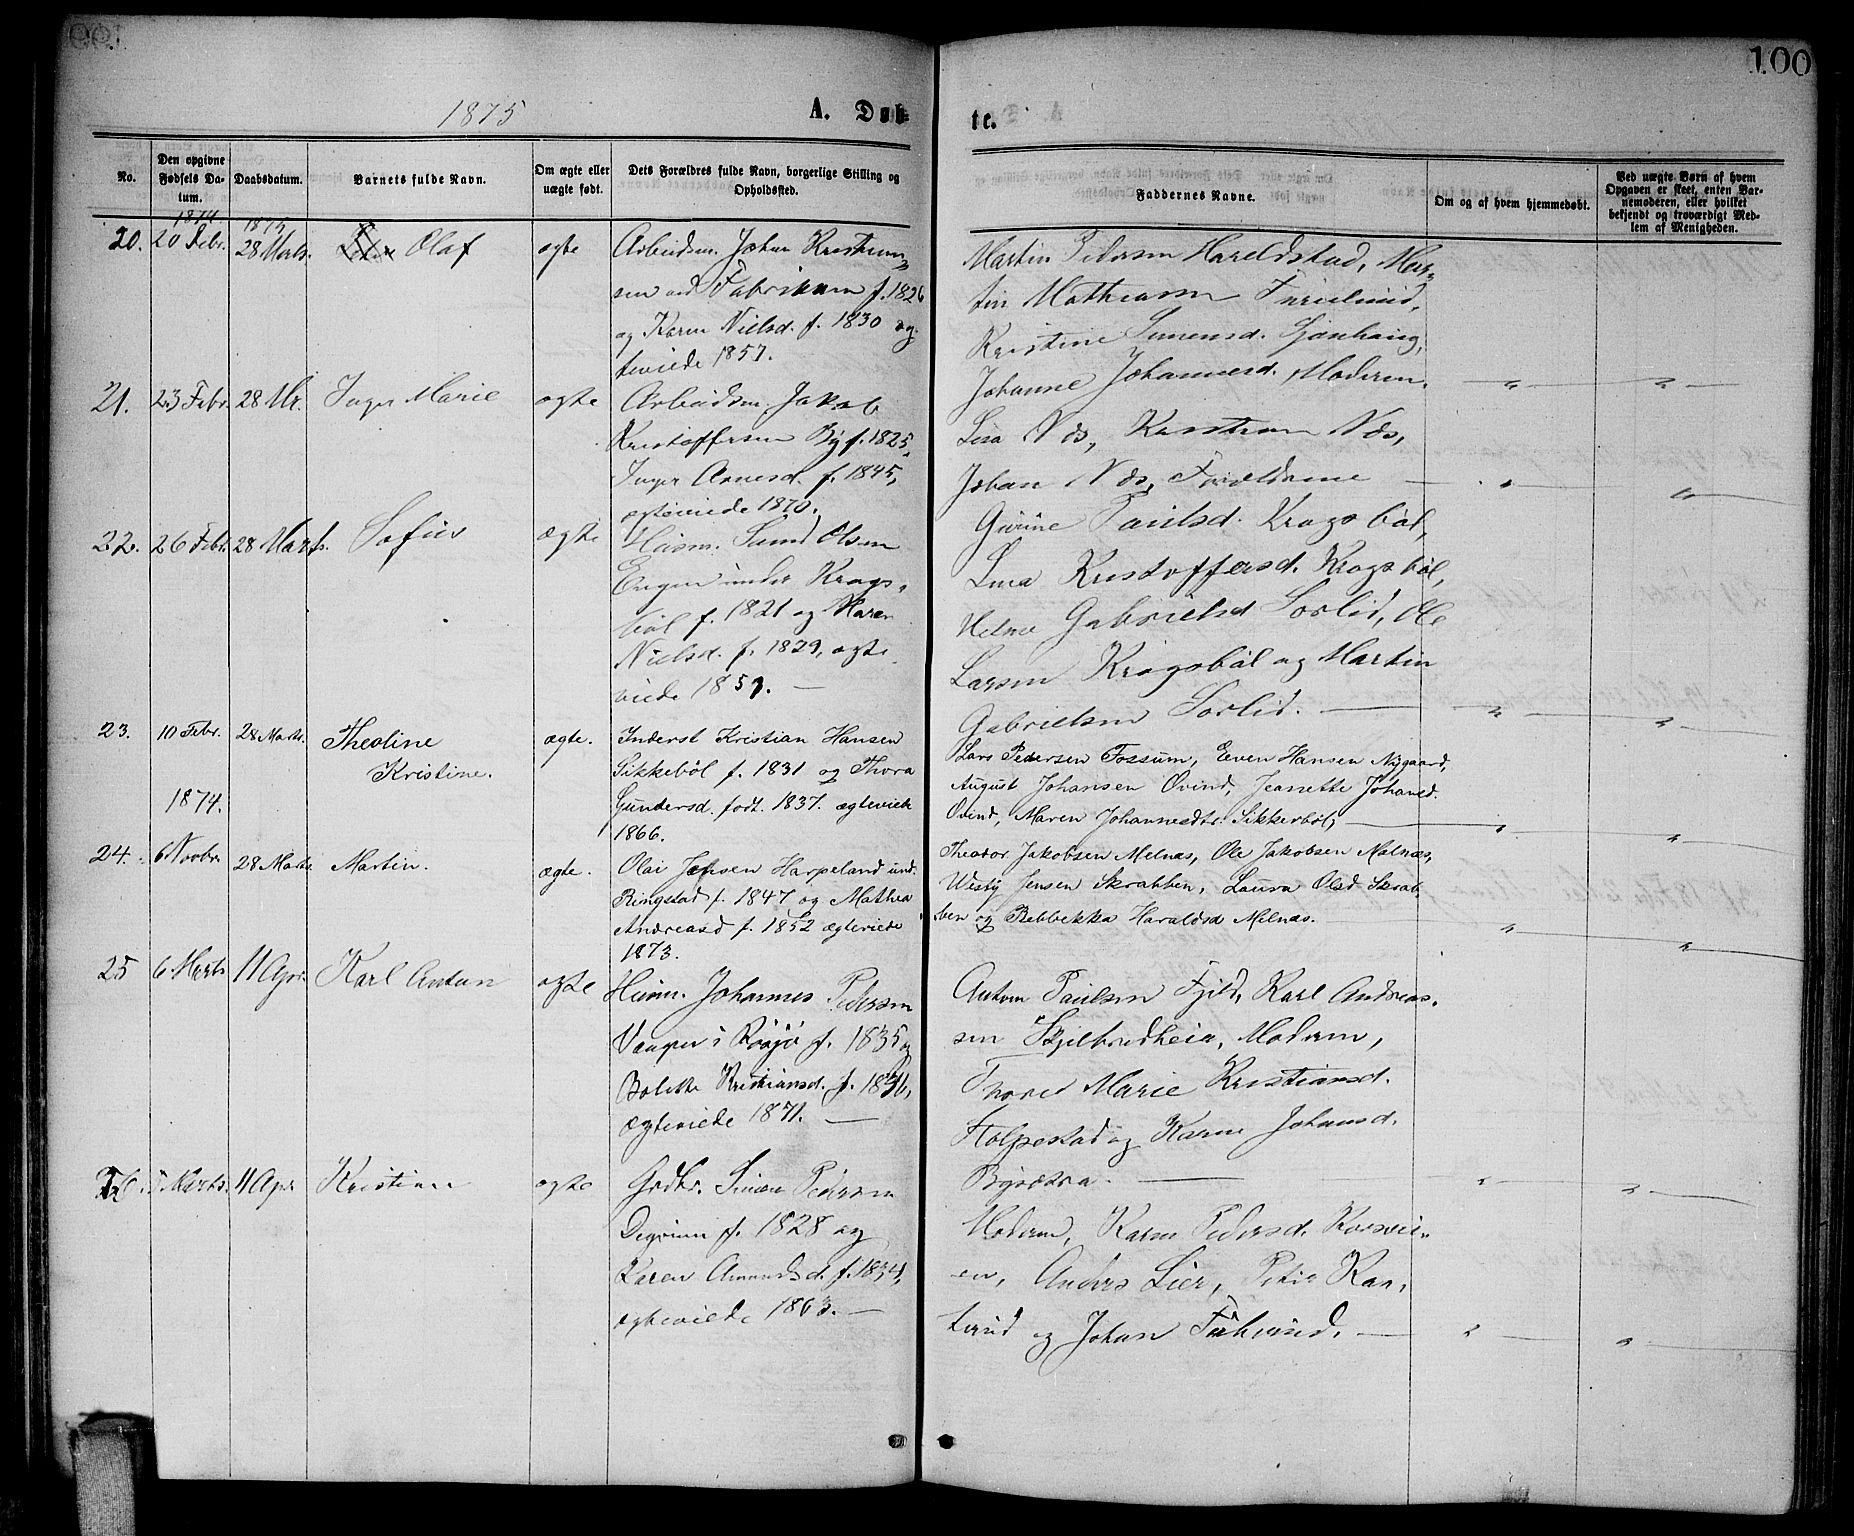 100
1875 A. Døb-
te.
No.
Den opgivne Fødsels Datum.
Daabsdatum.
Barnets fulde Navn.
Om ægte eller uægte født.
Dets Forældres fulde Navn, borgerlige Stilling og Opholdssted.
Faddernes Navne.
Om og af hvem hjemmedøbt.
Ved uægte Børn af hvem Opgaven er skeet, enten Barnemoderen, eller hvilket bekjendt og troværdigt Medlem af Menigheden.
1874 1875
20. 20 Febr. 28 Marts. Olaf ægte
Arbeidsm. Johan Kristian-
sen ved Fabrikken f. 1826
og Karen Nielsd. f. 1830 æg-
teviede 1857.
Martin Pedersen Haraldstad, Mar-
tin Mathiasen
Kristine Simensd.
Johanne Johannesd. Moderen. " "
21. 23 Febr. 28 Mr. Inger Marie ægte
Arbeidsm. Jakob
Kristoffersen By f. 1825,
Inger Arnesd. f. 1845,
ægteviede 1870.
Lisa Næs, Kristian Næs,
Johan Næs, Forældrene " "
22. 26 Febr. 28 Marts. Sofus ægte
Husm. Olsen
Engen under Krogs-
bøl f. 1821 og Maren
Nielsd. f. 1829, ægte
viede 1857. —
Gurine Paulsd. Krogsbøl,
Lina Kristoffersd. Krogsbøl,
Helme Gabrielsd Sorlid, Ole
Larsen Krogsbøl og Martin
Gabrielsen Sorlid. " "
23. 10 Febr. 28 Marts. Theoline ægte.
Kristine.
Inderst Kristian Hansen
Sikkebøl f. 1831 og Thora
Gundersd. født. 1837. ægteviede
1866.
Lars Pedersen Fossum, Even Hansen Nygaard,
August Johansen Øvind, Jeanette Johansd.
Øvind, Maren Johannesdtr. Sikkerbøl, " "
1874.
24. 6 Novbr. 28 Marts. Martin. ægte.
Olai Jensen Harpeland und.
Ringstad f. 1847 og Mathea
Andreasd f. 1852 ægteviede
1873.
Theodor Jakobsen Melnæs, Ole Jakobsen Melnæs,
Westy Jensen Skrabben, Laura Olsd Skrab-
ben og Rebbekka Haraldsd Melnæs. " "
25 6 Marts 11 Apr. Karl Anton ægte
Husm. Johannes Pedersen
Vanger i Røsjø f. 1835 og
Bolette Kristiansd. f. 1836,
ægteviede 1871. —
Anton Paulsen Fjeld, Karl Andreas-
sen Skjelbredheia, Moderen,
Marie Kristiansd.
Holpestad og Karen Johansd.
Bysætra. — " "
26. Marts. 11 Apr Kristian ægte
Grdbr. Simen Pedersen
Digerim f. 1828 og
Karen Amundsd. f. 1834,
ægteviede 1863. —
Moderen, Karen Pedersd.
en, Anders Lier, Peter Kan-
terud og Johan " "